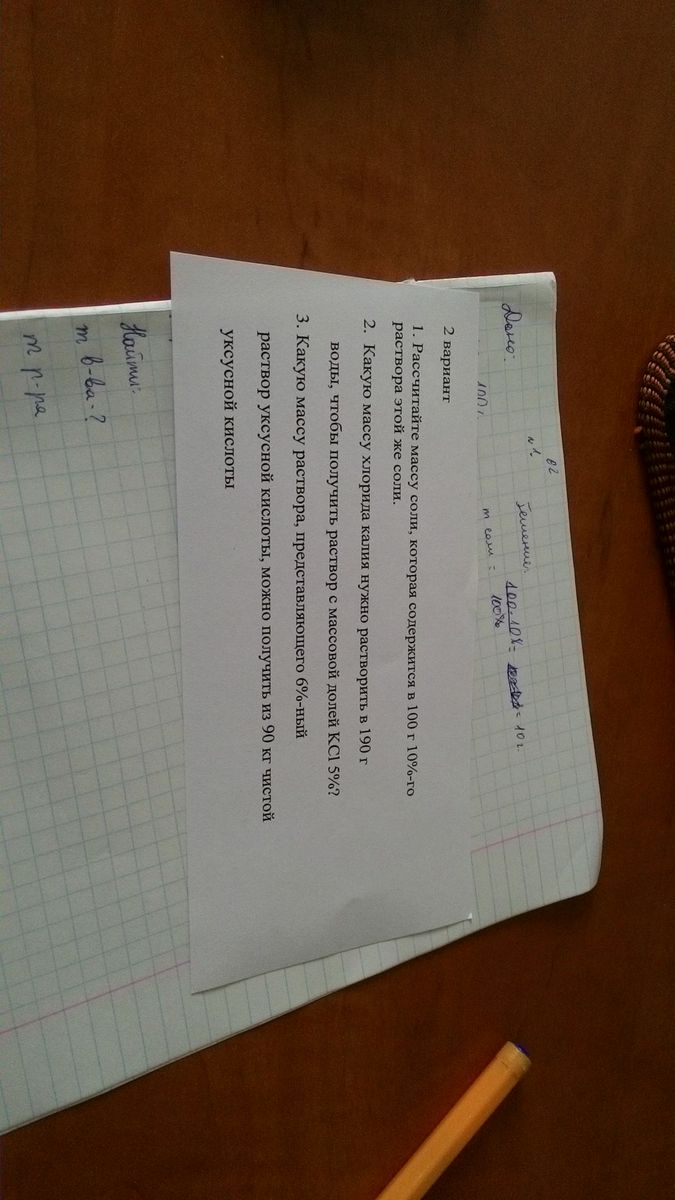 в2
№1.
Дано:
Решение:
100 г.
m соли = 100·10% = = 10 г
100%
2 вариант
1. Рассчитайте массу соли, которая содержится в 100 г 10%-го
раствора этой же соли.
2. Какую массу хлорида калия нужно растворить в 190 г
воды, чтобы получить раствор с массовой долей KCl 5%?
3. Какую массу раствора, представляющего 6%-ный
раствор уксусной кислоты, можно получить из 90 кг чистой
уксусной кислоты
Найти:
m в-ва-?
m р-ра